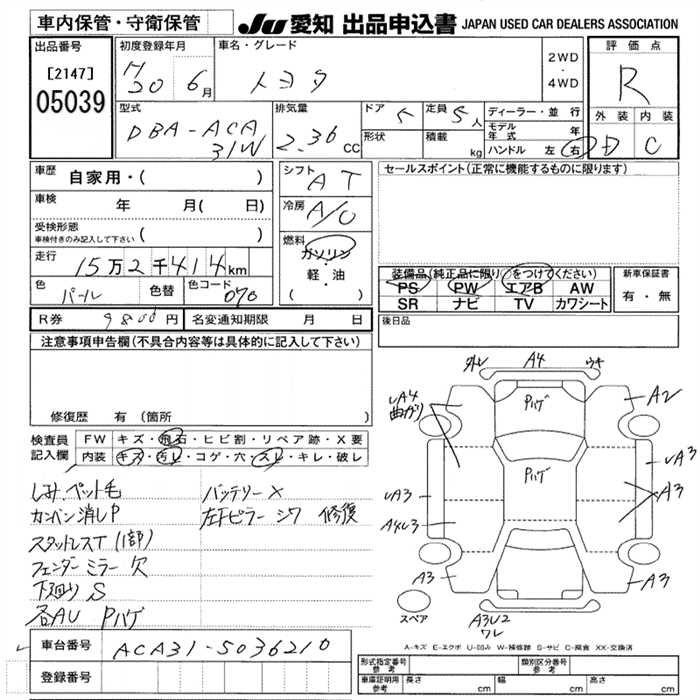 車内保管・守衛保管
JU 愛知 出品申込書 JAPAN USED CAR DEALERS ASSOCIATION
出品番号
[2147]
05039
初度登録年月
H20 6月
車名・グレード
トヨタ
2WD
・
4WD
評価点
R
外装 内装
D C
型式
DBA-ACA
31W
排気量
2.36 cc
ドア 5
定員 5人
形状
積載 kg
ディーラー・並行
モデル年式 年
ハンドル 左 右
車歴
自家用・( )
車検
年 月( 日)
受検形態
車検付きのみ記入して下さい ( )
走行
15万2千414km
色 パール 色替 色コード 070
R券 9800円 名変通知期限 月 日
シフト
AT
冷房
A/C
燃料
ガソリン
・
軽・油
( )
セールスポイント(正常に機能するものに限ります)
装備品(純正品に限り○をつけてください)
PS PW エアB AW
SR ナビ TV カワシート
新車保証書
有・無
後日品
注意事項申告欄(不具合内容等は具体的に記入して下さい)
修復歴 有(箇所 )
検査員記入欄
FW キズ・飛石・ヒビ割・リペア跡・X要
内装 キズ・汚レ・コゲ・穴・スレ・キレ・破レ
しみ、ペット毛 バッテリーX
カンバン消しP 左下ピラー シワ 修復
スタットレスT(1部)
フェンダーミラー欠
下廻りS
各AU Pハゲ
車台番号 ACA31-5036210
登録番号
A4
ウキ
Pハゲ
UA4
曲がり
A2
Pハゲ
UA3
A3
UA3
A4U3
A3
A3
スペア
A3U2
ワレ
A-キズ E-エクボ U-凹み W-補修跡 S-サビ C-腐食 XX-交換済
形式指定番号 参考
類別区分番号 参考
車庫証明用 参考 長さ cm 幅 cm 高さ cm